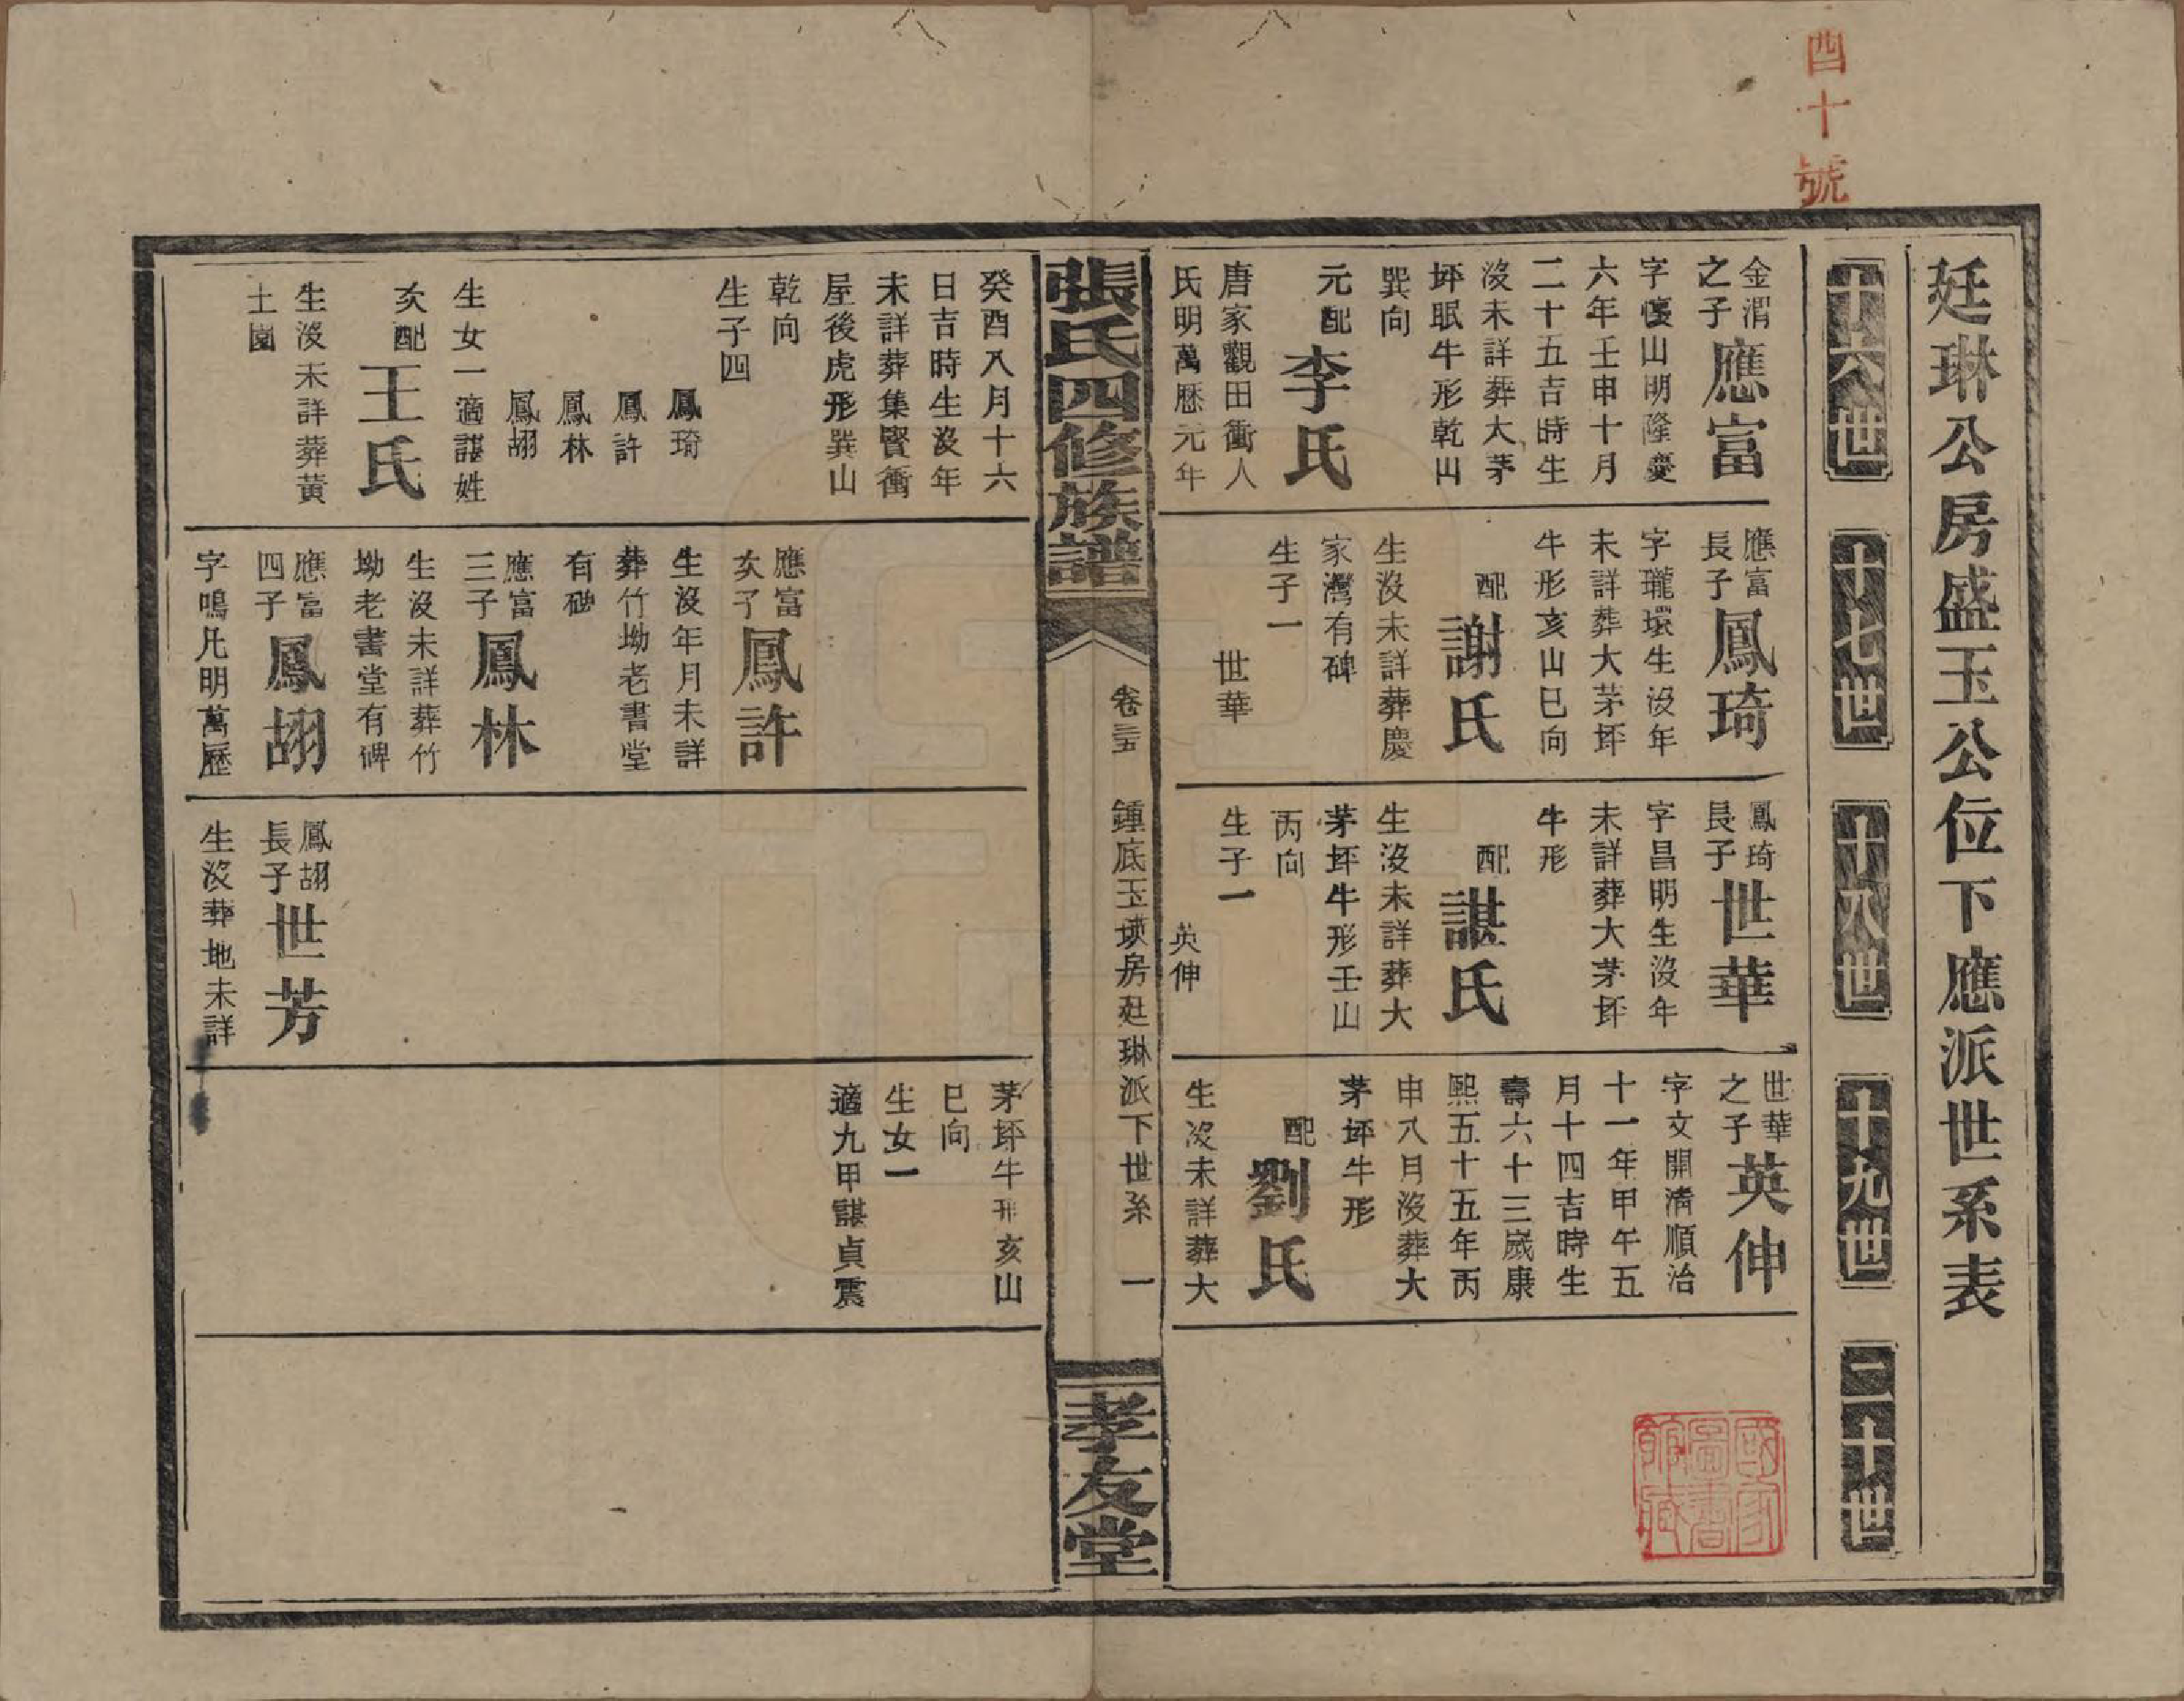 四十號
廷琳公房盛玉公位下應派世系表
十六世
十七世
十八世
十九世
二十世
金渭
之子
應富
字懷山明隆慶
六年壬申十月
二十五吉時生
沒未詳葬大茅
坪眠牛形乾山
巽向
元配
李氏
唐家觀田衝人
氏明萬歷元年
應富
長子
鳳琦
字瓏環生沒年
未詳葬大茅坪
牛形亥山巳向
配
謝氏
生沒未詳葬慶
家灣有碑
生子一
世華
鳳琦
長子
世華
字昌明生沒年
未詳葬大茅坪
牛形
配
諶氏
生沒未詳葬大
茅坪牛形壬山
丙向
生子一
英伸
世華
之子
英伸
字文開清順治
十一年甲午五
月十四吉時生
壽六十三歲康
熙五十五年丙
申八月沒葬大
茅坪牛形
配
劉氏
生沒未詳葬大
國家
圖書
館藏
張氏四修族譜
卷三五
鍾底玉塅房廷琳派下世系
一
孝友堂
癸酉八月十六
日吉時生沒年
未詳葬集賢衝
屋後虎形巽山
乾向
生子四
鳳琦
鳳許
鳳林
鳳翃
生女一適諶姓
次配
王氏
生沒未詳葬黃
土園
應富
次子
鳳許
生沒年月未詳
葬竹坳老書堂
有碑
應富
三子
鳳林
生沒未詳葬竹
坳老書堂有碑
應富
四子
鳳翃
字鳴凡明萬歷
鳳翃
長子
世芳
生沒葬地未詳
茅坪牛形亥山
巳向
生女一
適九甲諶貞震